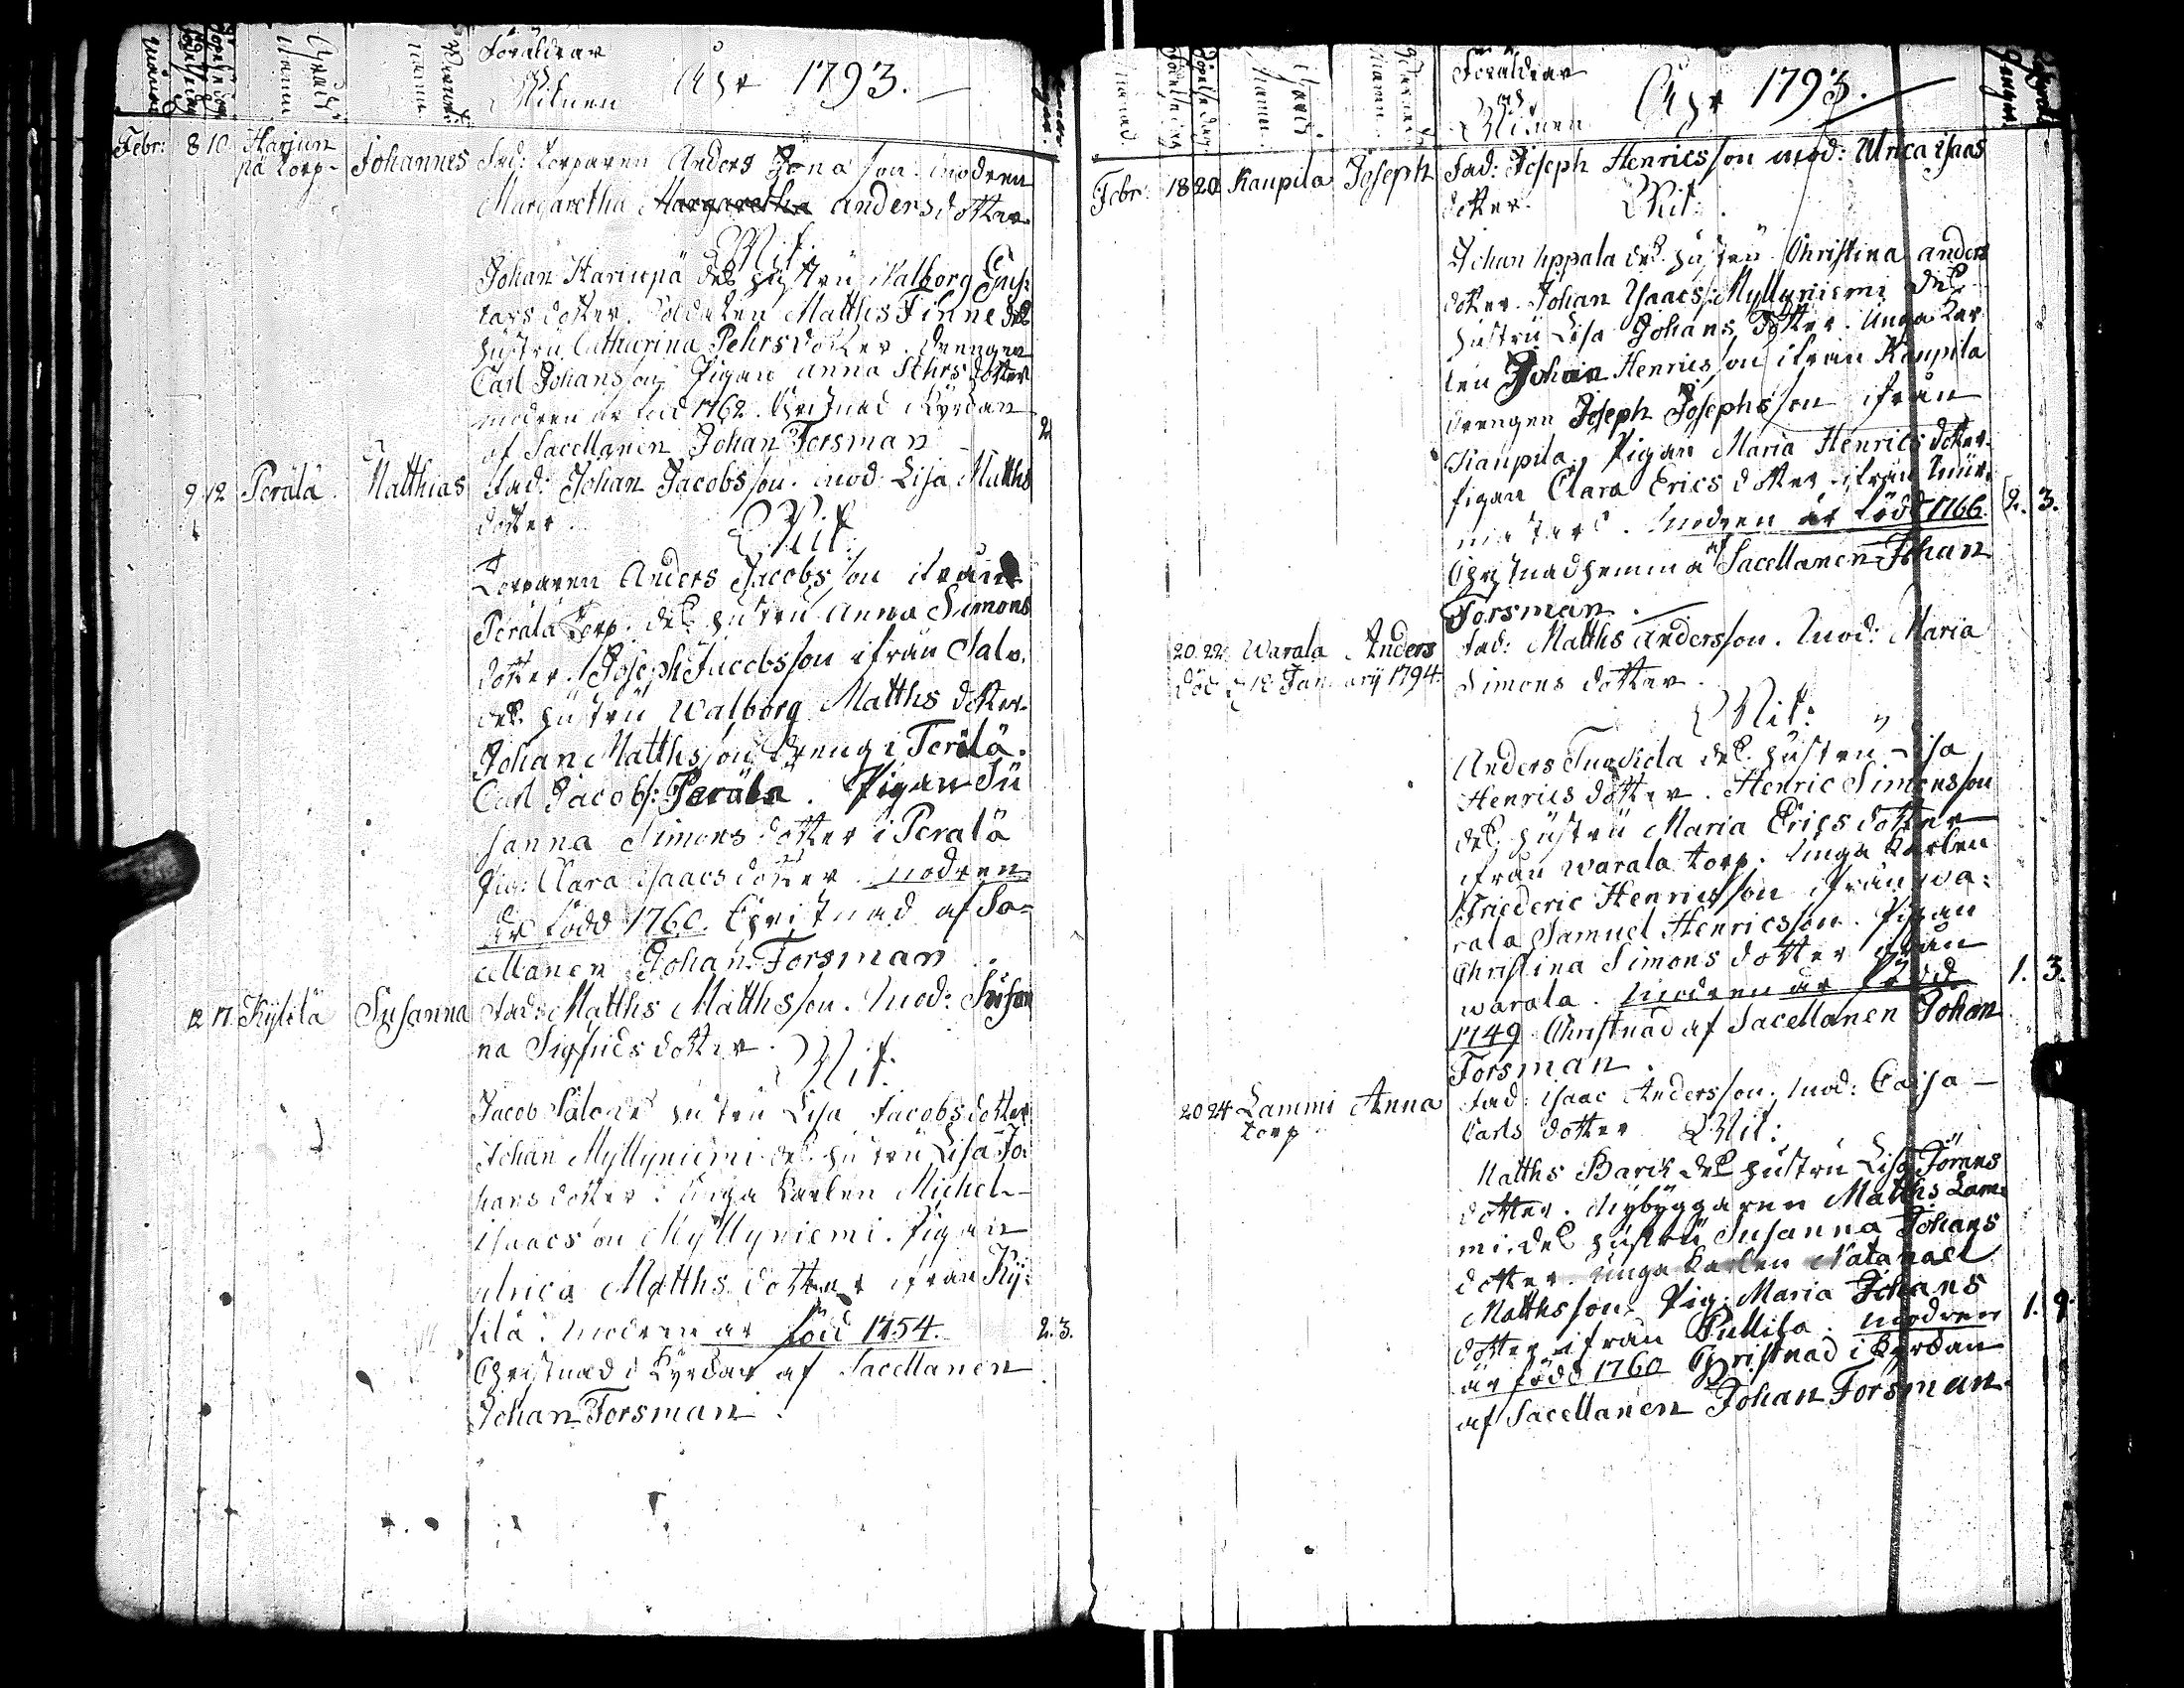 Föräldrar
Witnen
Åhr 1793.
Febr: 8 10 Harjun Johannes Fad: Torparen Anders Jöna son. modren
på torp
Margaretha Margaretha Andersdotter
Wit:
Johan Hariupä des hustru Walborg Gus:
tafsdotter. Soldaten Matths Finne des
hustru Catharina Pehrsdotter. Drengen
Carl Johansson Pigan Anna Pehrs dotter
modren är född 1762. Christnad i Kyrckan
af Sacellanen Johan Forsman 2
9 12 Perälä Matthias Fad: Johan Jacobsson. mod: Lisa Matths
dotter. Wit:
Torparen Anders Jacobsson ifrån
Perälä Torp. des hustru Anna Simons
dotter. Joseph Jacobsson ifrån Salo.
des hustru Walborg Matths dotter.
Johan Matthsson dreng i Perälä.
Carl Jacobs: Perälä. Pigan Su
sanna Simons dotter i Perälä
Pig: Clara Isaacsdotter. modren
är född 1760. Christnad af Sa-
cellanen Johan Forsman
12 17 Kylilä Susanna Fad: Matths Matthsson. Mod: Susan
na Sigfridsdotter. Wit:
Jacob Salo des hustru Lisa Jacobsdotter
Johan Myllyniemi des hustru Lisa Jo:
hansdotter. Unga Karlen Michel
Isaacsson Myllyniemi. Pigan
Ulrica Matths dotter ifrån Ky:
lilä. Modren är född 1754. 2. 3.
Christnad i Kyrckan af Sacellanen
Johan Forsman.
Föräldrar
Witnen
Åhr 1793.
Febr: 18 20 Kaupila Joseph Fad: Joseph Henricsson mod: Ulrica Isaas
dotter. Wit:
Johan Uppala des hustru Christina anders
dotter. Johan Isaacs: Myllyniemi des
hustru Lisa Johans dotter. Unga Kar
len Johan Henricsson ifrån Kaupila
Drengen Joseph Josephsson ifrån
Kaupila. Pigan Maria Henricsdotter
Pigan Clara Erics dotter ifrån
Modren är född 1766. 2. 3.
Christnad hemma af Sacellanen Johan
Forsman.
20 22 Warala Anders Fad: Matths Andersson. Mod: Maria
död d 12 January 1794. Simons dotter.
Wit:
Anders des hustru Lisa
Henrics dotter. Henric Simonsson
des hustru Maria Ericsdotter
ifrån Warala torp. Unga Karlen
Friederic Henricsson ifrån Wa:
rala Samuel Henricsson. Pigan
Christina Simons dotter ifrån
Warala. Modren är född 1. 3.
1749 Christnad af Sacellanen Johan
Forsman.
20 24 Lammi Anna Fad: Isaac Andersson. Mod: Caisa
torp Carls dotter Wit:
Matths Barck des hustru Lisa Jörans
dotter. Nybyggaren Matths Lam:
mi des hustru Susanna Johans
dotter. Unga Karlen Natanael
Matthsson. Pig: Maria Johans 1. 9.
dotter ifrån Pullila. modren
är född 1760 Christnad i Kyrckan
af Sacellanen Johan Forsman.